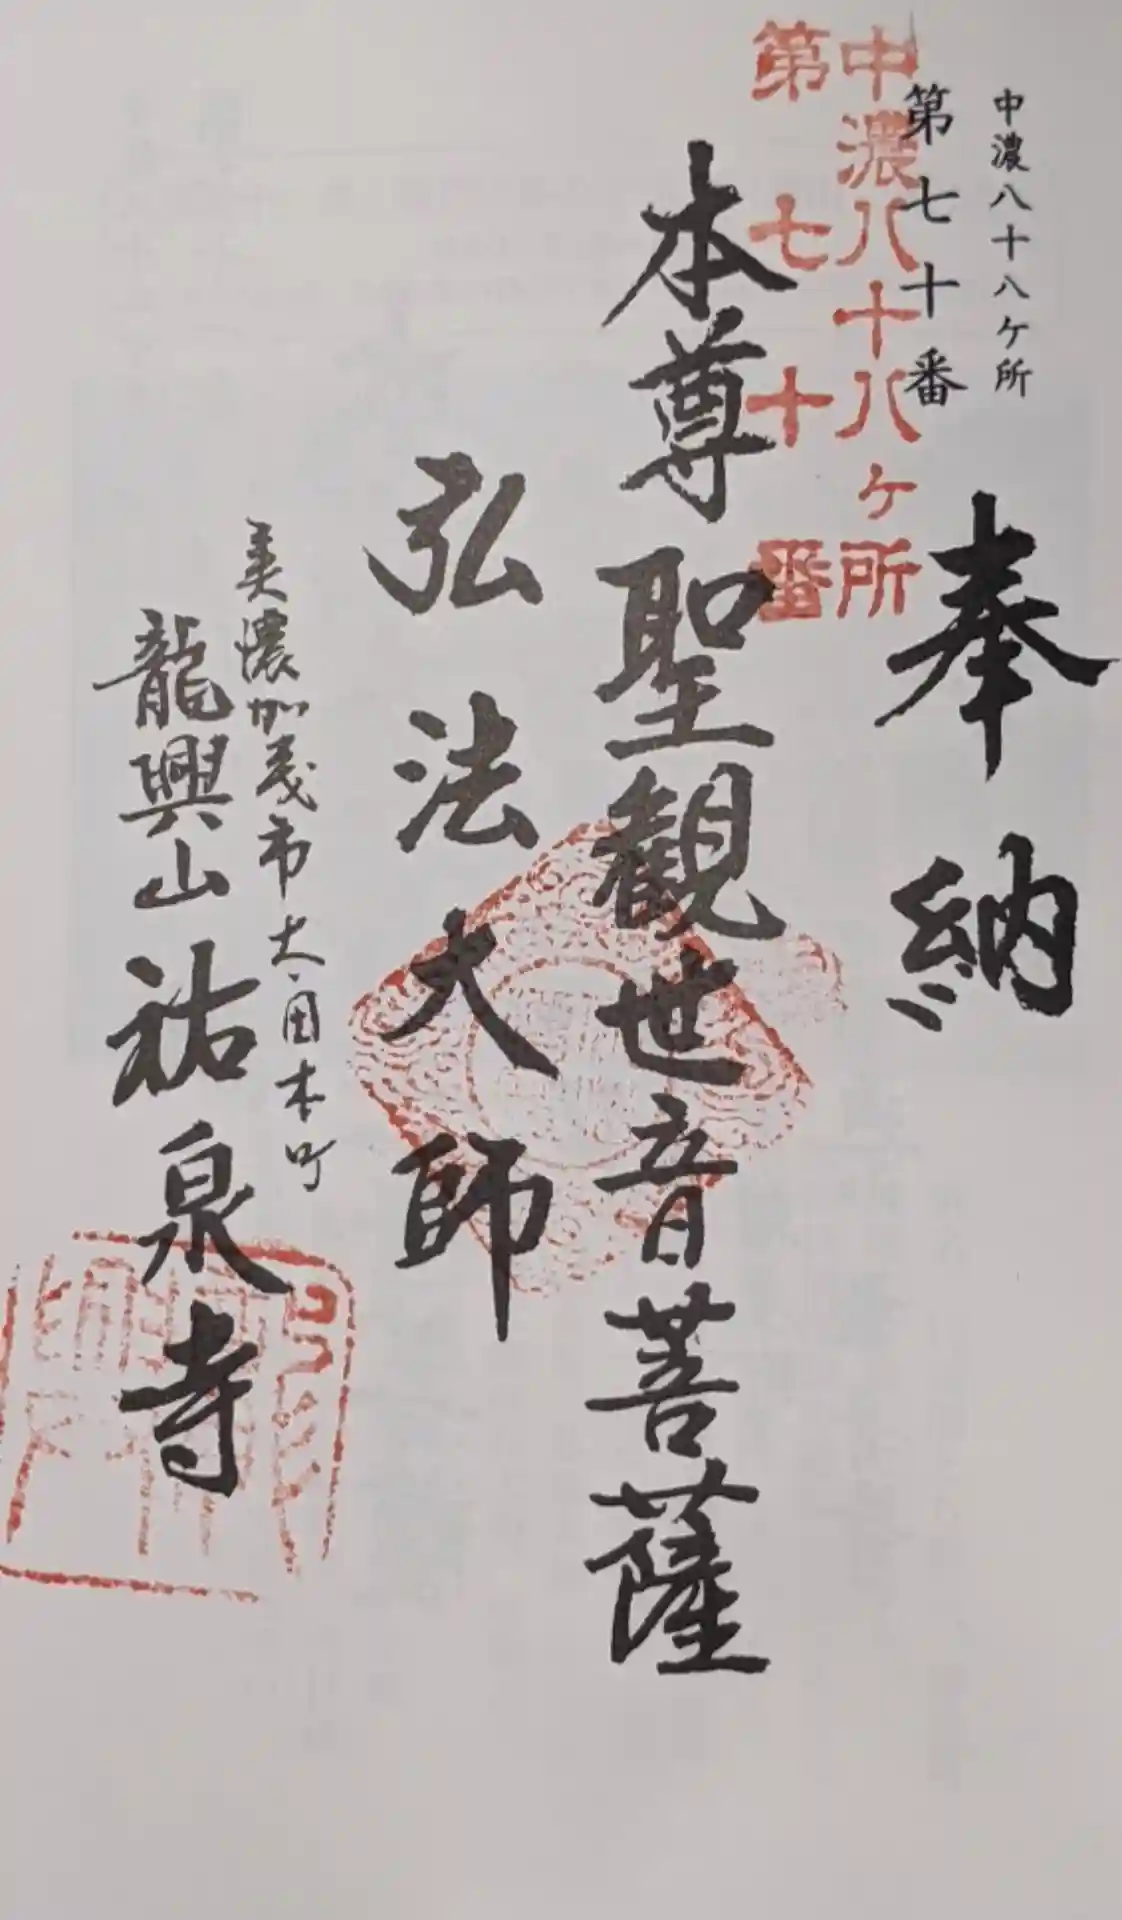 中濃八十八ケ所
第七十番
奉納
中濃八十八ヶ所
第七十番
本尊聖観世音菩薩
弘法大師
美濃加茂市太田本町
龍興山祐泉寺